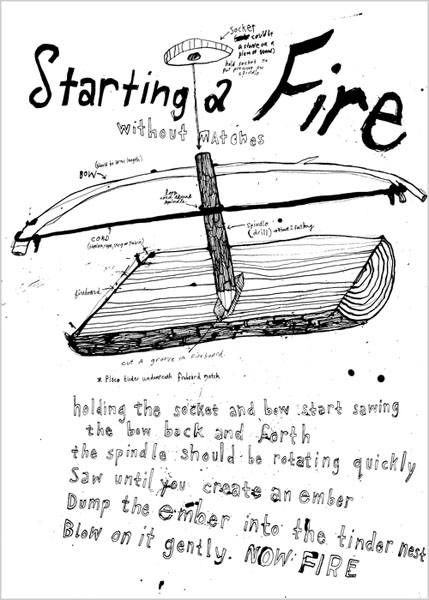 Starting a Fire
without MAtches
Socket
could be
a stone or a
piece of wood
hold socket to
put pressure on
spindle
BOW
(should be arms length)
loop
cord around
spindle
CORD
Spindle
(drill)
fireboard
cut a groove in fireboard.
* Place tinder underneath fireboard notch
holding the socket and bow start sawing
the bow back and forth
the spindle should be rotating quickly
Saw until you create an ember
Dump the ember into the tinder nest
Blow on it gently. NOW FIRE